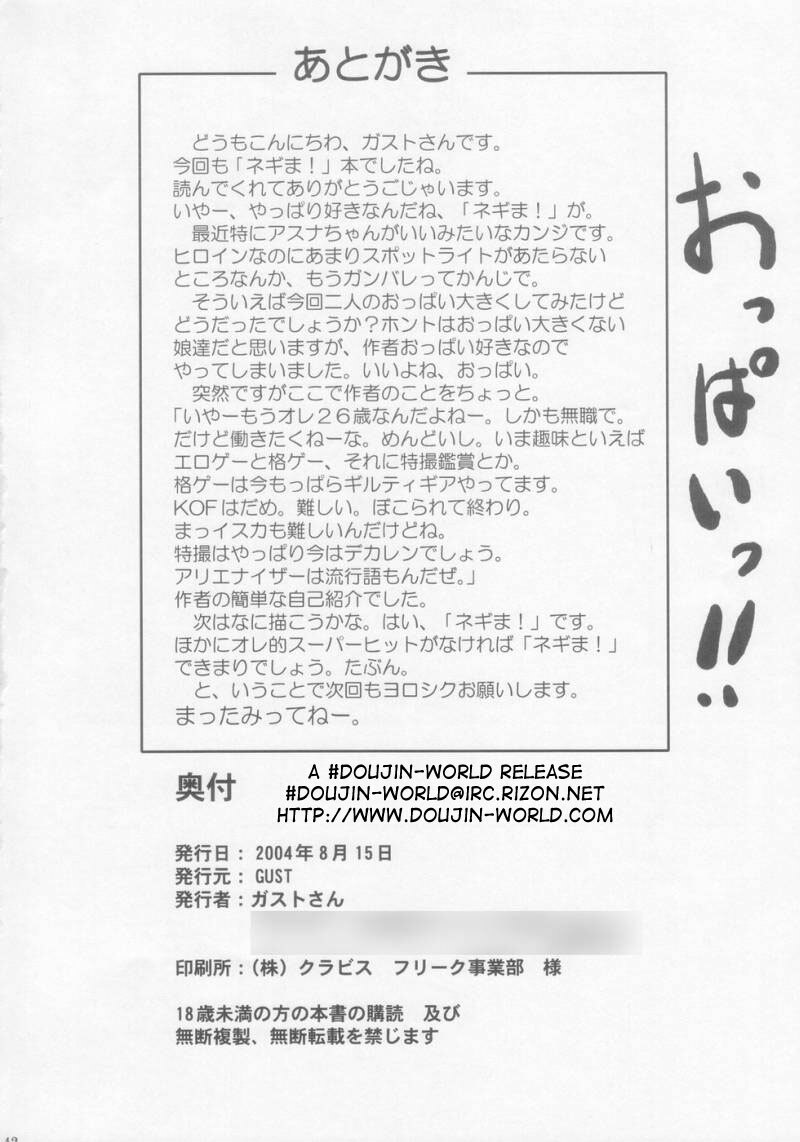 あとがき
どうもこんにちわ、ガストさんです。
今回も「ネギま！」本でしたね。
読んでくれてありがとうごじゃいます。
いやー、やっぱり好きなんだね、「ネギま！」が。
最近特にアスナちゃんがいいみたいなカンジです。
ヒロインなのにあまりスポットライトがあたらない
ところなんか、もうガンバレってかんじで。
そういえば今回二人のおっぱい大きくしてみたけど
どうだったでしょうか？ホントはおっぱい大きくない
娘達だと思いますが、作者おっぱい好きなので
やってしまいました。いいよね、おっぱい。
突然ですがここで作者のことをちょっと。
「いやーもうオレ２６歳なんだよねー。しかも無職で。
だけど働きたくねーな。めんどいし。いま趣味といえば
エロゲーと格ゲー、それに特撮鑑賞とか。
格ゲーは今もっぱらギルティギアやってます。
KOFはだめ。難しい。ぼこられて終わり。
まっイスカも難しいんだけどね。
特撮はやっぱり今はデカレンでしょう。
アリエナイザーは流行語もんだぜ。」
作者の簡単な自己紹介でした。
次はなに描こうかな。はい、「ネギま！」です。
ほかにオレ的スーパーヒットがなければ「ネギま！」
できまりでしょう。たぶん。
と、いうことで次回もヨロシクお願いします。
まったみってねー。
おっぱいっ!!
奥付
A #DOUJIN-WORLD RELEASE
#DOUJIN-WORLD@IRC.RIZON.NET
HTTP://WWW.DOUJIN-WORLD.COM
発行日：2004年8月15日
発行元：GUST
発行者：ガストさん
印刷所：（株）クラビス　フリーク事業部　様
18歳未満の方の本書の購読　及び
無断複製、無断転載を禁じます